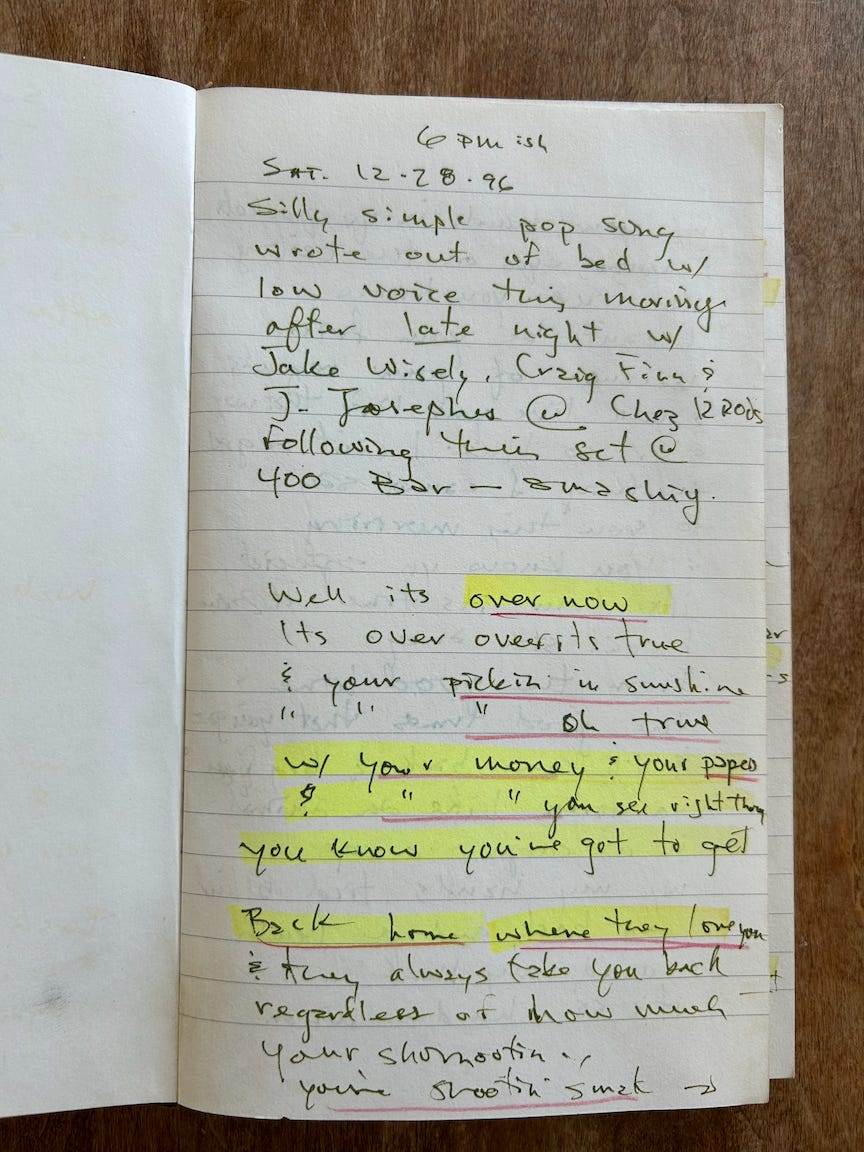 6 pm ish
Sat. 12.28.96
Silly simple pop song
wrote out of bed w/
low voice this morning
after late night w/
Jake Wisely, Craig Finn &
J. Josephes @ Chez 12 Rods
Following their set @
400 Bar — smashing.
Well its over now
Its over over its true
& your pickin in sunshine
" " " oh true
w/ your money & your papes
& " " you see right thru
you know you've got to get
Back home where they love you
& they always take you back
regardless of how much
your
you're shootin' smak →